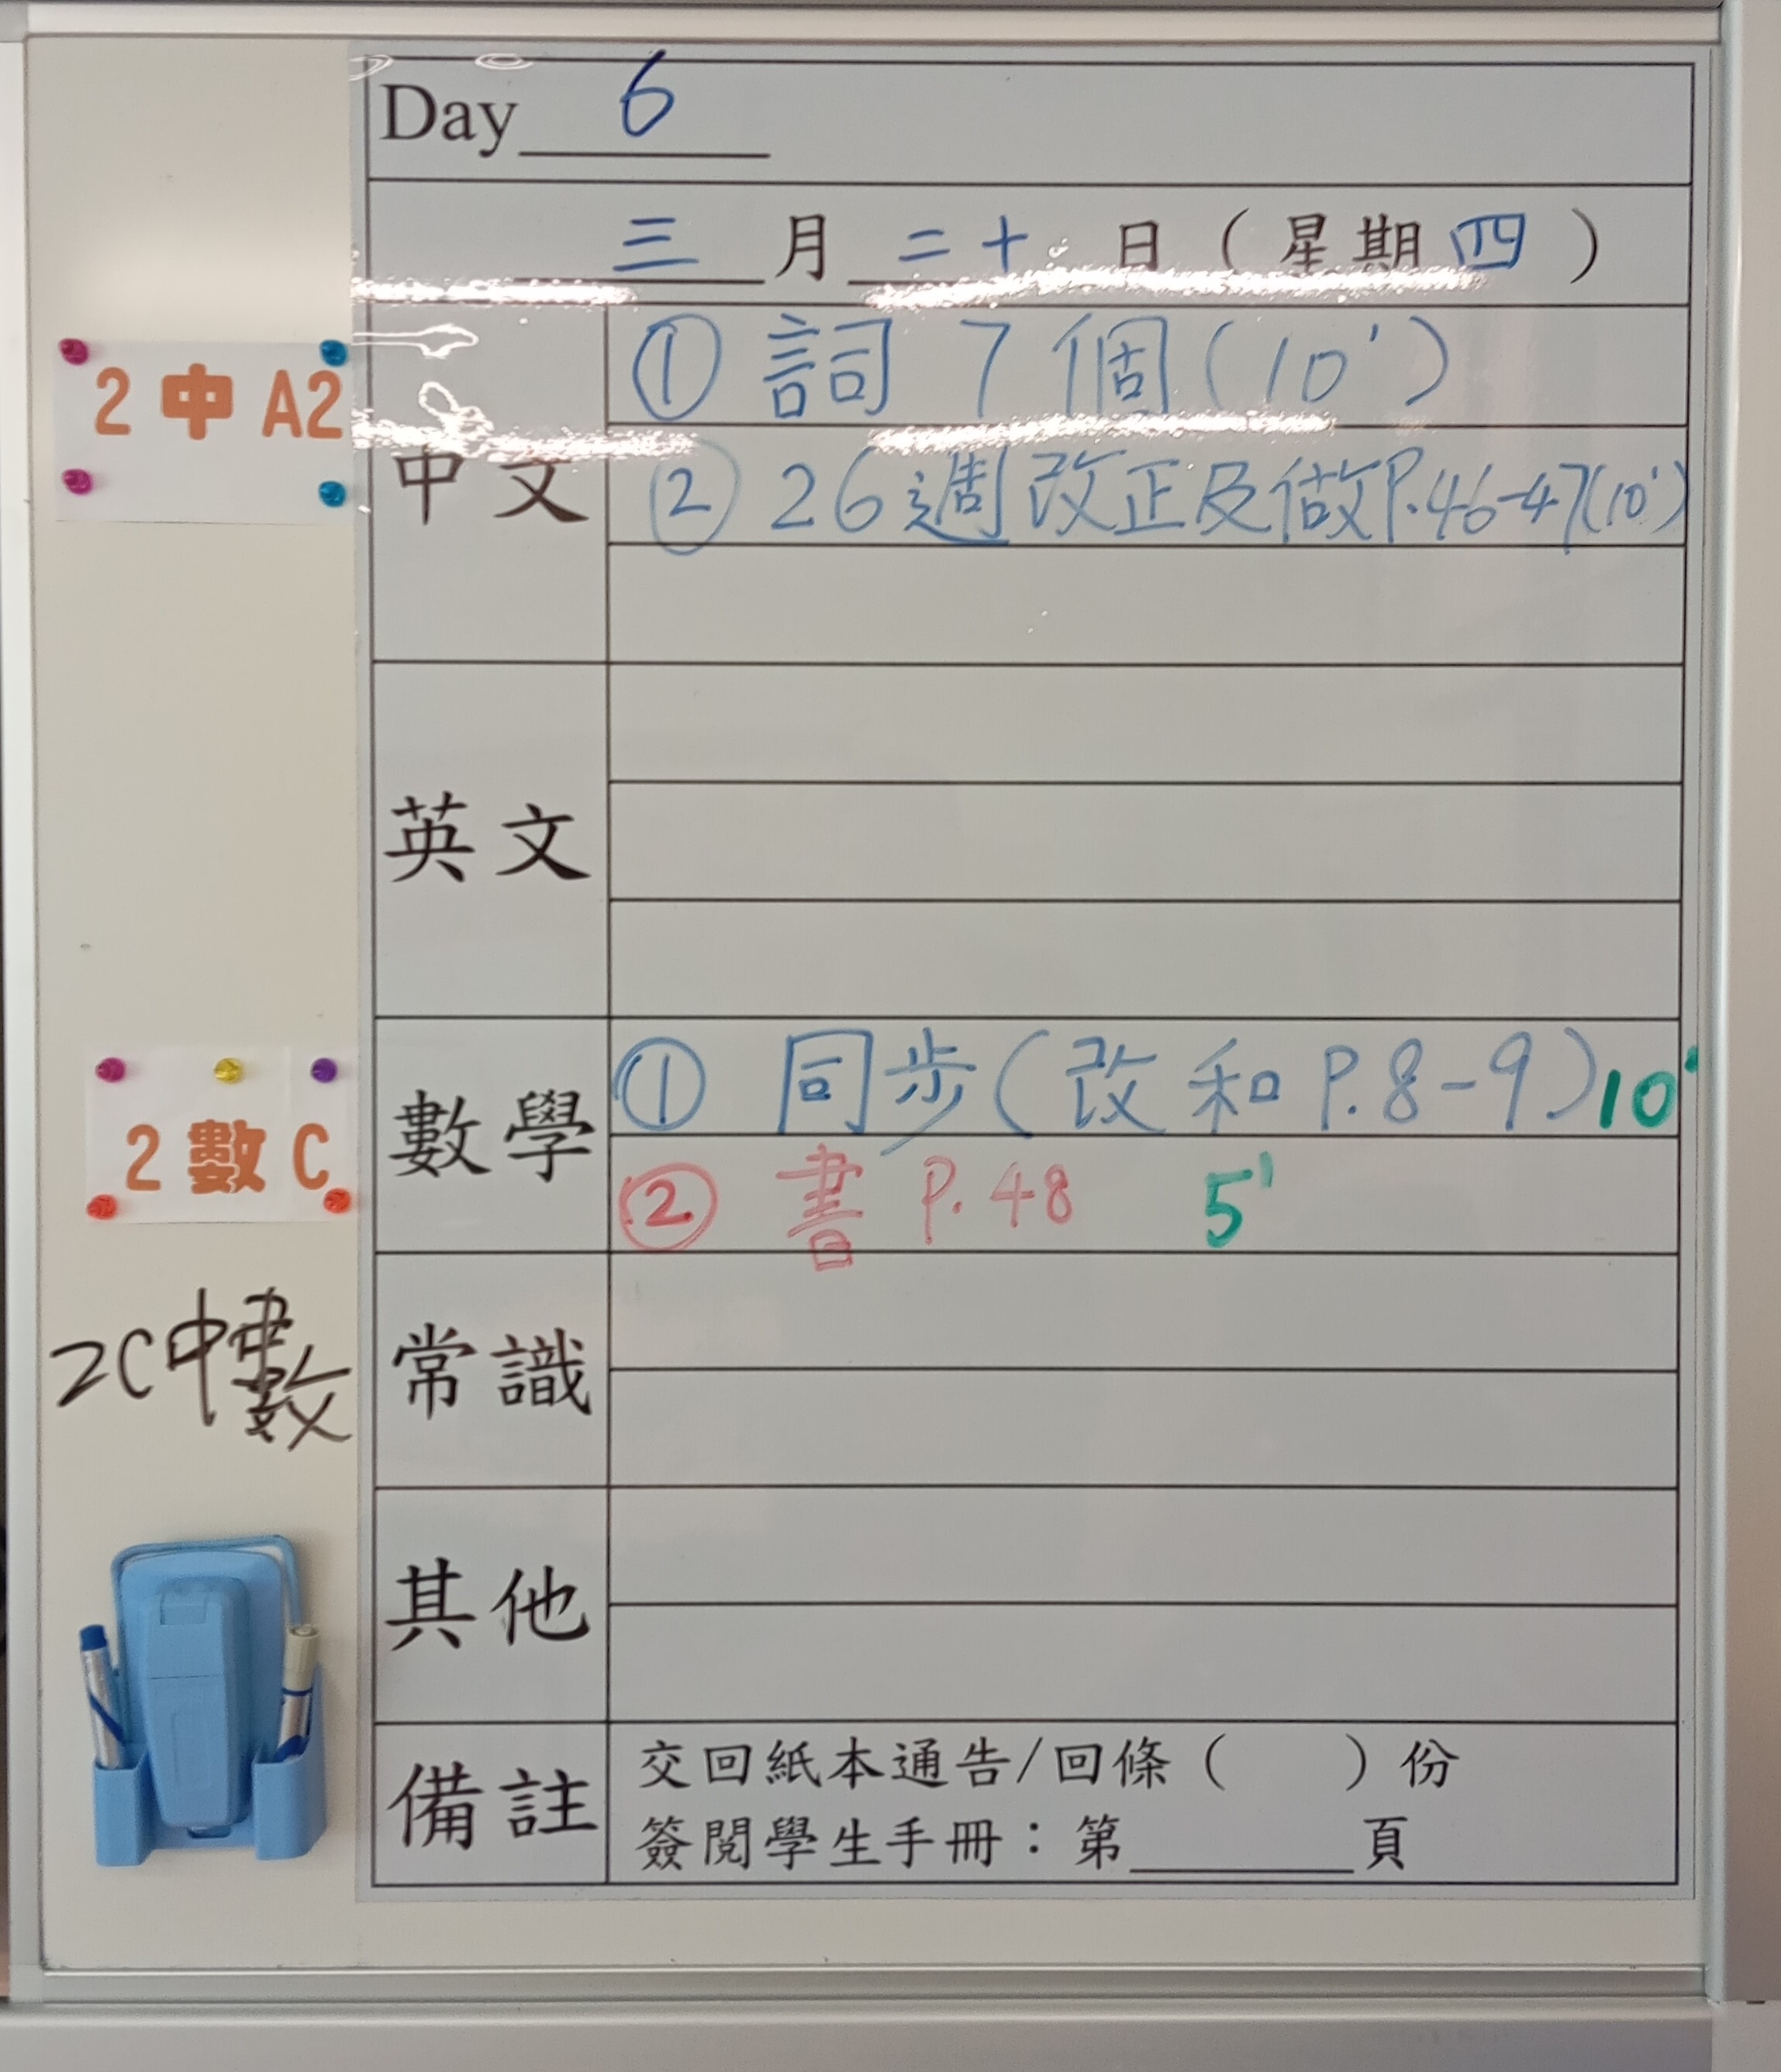 Day 6
三月二十日(星期四)
2中A2
中文
① 詞 7 個(10')
② 26週改正及做P.46-47(10')
英文
2數C
數學
① 同步(改和P.8-9)10'
② 書 P.48 5'
2C中數
常識
其他
備註
交回紙本通告/回條( )份
簽閱學生手冊：第______頁